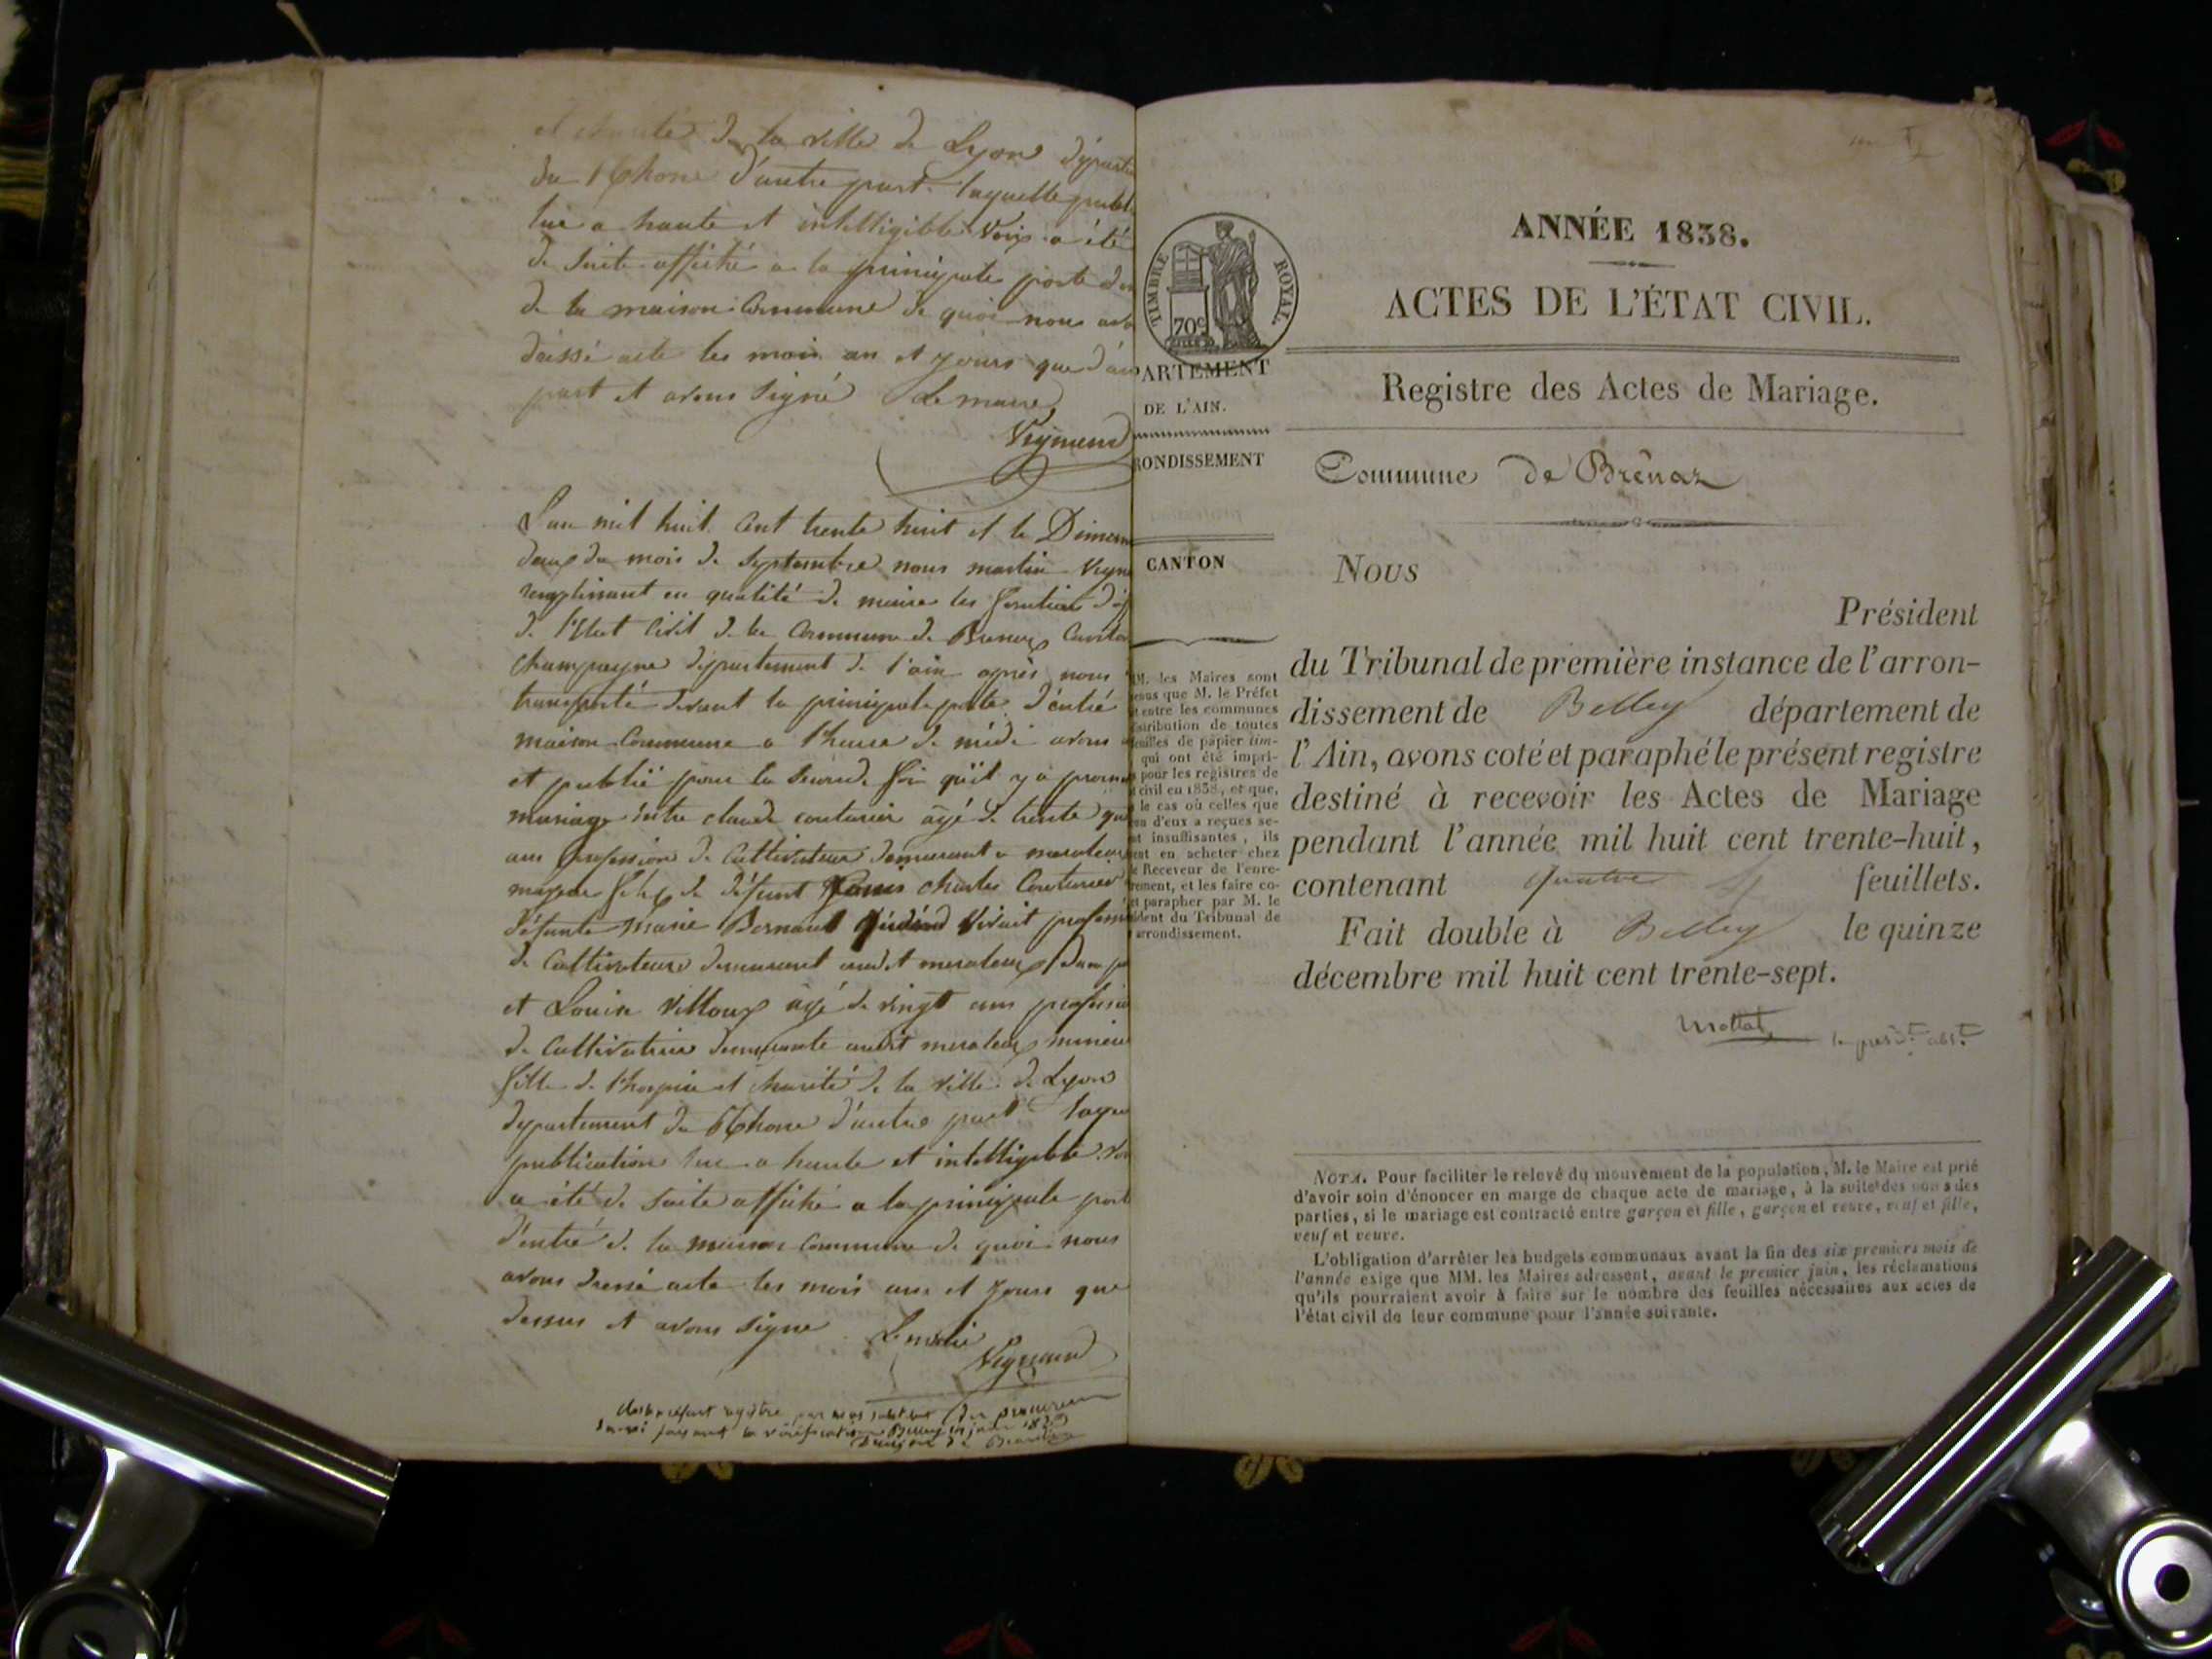 de la ville de Lyon départe
du Rhone d'autre part. laquelle publi
lue a haute et intelligible voix a été
de suite affiché a la principale porte d'en
de la maison Commune de quoi nous avo
dressé acte les mois an et jours que d'au
part et avons signé Le maire
Veyment
L'an mil huit cent trente huit et le Diman
deux du mois de Septembre nous martin Veym
remplissant en qualité de maire les fonction d'of
de l'Etat Civil de la Commune de Brenaz Canton
champagne département de l'ain après nous
transporté devant la principale porte d'entré
maison Commune a l'heure de midi avons
et publié pour la seconde foi qu'il y a prome
mariage entre claude couturier agé de trente qua
ans profession de Cultivateur demeurant a
majeur fils de défunt Louis charles Couturier
défunte Marie Bernard vivait professi
de Cultivateur demeurant audit d'une pa
et Louise Villoux agé de vingt ans professio
de Cultivatrice demeurante audit mineu
fille de l'hospice et charité de la ville de Lyon
département du Rhone d'autre part laque
publication lue a haute et intelligible voi
a été de suite affiché a la principale port
d'entré de la maison Commune de quoi nous
avons dressé acte les mois ans et jours que
dessus et avons signé Le maire
Veyment
registre par nous du procureur
la vérification Belley
TIMBRE ROYAL
70c
PARTEMENT
DE L'AIN.
RONDISSEMENT
CANTON
M. les Maires sont
enus que M. le Préfet
t entre les communes
istribution de toutes
feuilles de papier tim-
qui ont été impri-
pour les registres de
t civil en 1838, et que,
le cas où celles que
un d'eux a reçues se-
t insuffisantes, ils
ent en acheter chez
e Receveur de l'enre-
trement, et les faire co-
et parapher par M. le
ident du Tribunal de
arrondissement.
ANNÉE 1838.
ACTES DE L'ÉTAT CIVIL.
Registre des Actes de Mariage.
Commune de Brênaz
Nous
Président
du Tribunal de première instance de l'arron-
dissement de Belley département de
l'Ain, avons coté et paraphé le présent registre
destiné à recevoir les Actes de Mariage
pendant l'année mil huit cent trente-huit,
contenant quatre feuillets.
Fait double à Belley le quinze
décembre mil huit cent trente-sept.
Mottat le présdt abst
NOTA. Pour faciliter le relevé du mouvement de la population, M. le Maire est prié
d'avoir soin d'énoncer en marge de chaque acte de mariage, à la suite des noms des
parties, si le mariage est contracté entre garçon et fille, garçon et veuve, veuf et fille,
veuf et veuve.
L'obligation d'arrêter les budgets communaux avant la fin des six premiers mois de
l'année exige que MM. les Maires adressent, avant le premier juin, les réclamations
qu'ils pourraient avoir à faire sur le nombre des feuilles nécessaires aux actes de
l'état civil de leur commune pour l'année suivante.